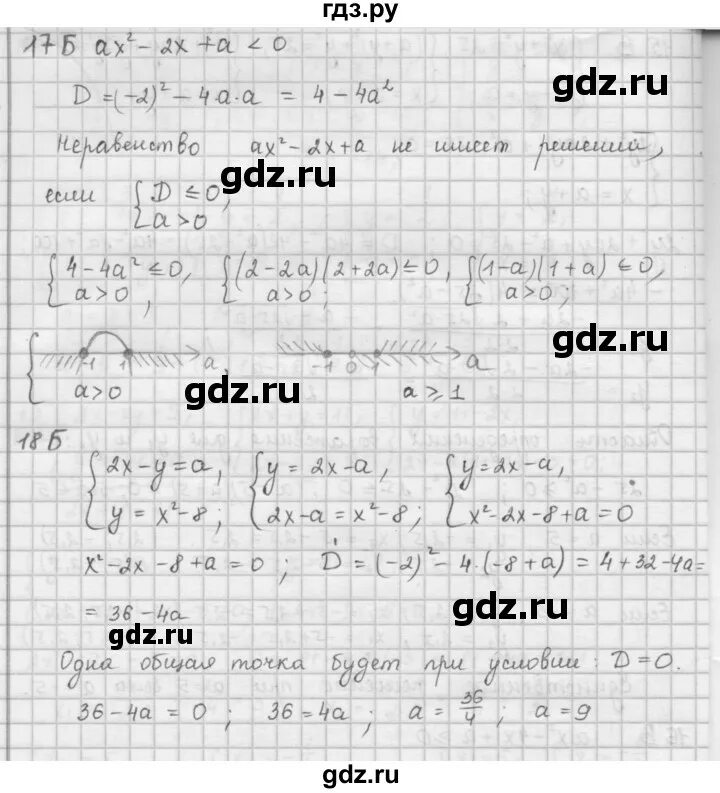 гдз.ру
17Б ax² - 2x + a < 0
D = (-2)² - 4·a·a = 4 - 4a²
gdz.ru
Неравенство ax² - 2x + a не имеет решений,
gdz.ru
если { D ≤ 0, a > 0
{ 4 - 4a² ≤ 0, a > 0 ; { (2 - 2a)(2 + 2a) ≤ 0, a > 0 ; { (1 - a)(1 + a) ≤ 0, a > 0 ;
gdz.ru
{ -1 1 a, a > 0 -1 0 1 a a ≥ 1
gdz.ru
18Б
{ 2x - y = a, y = x² - 8 ; { y = 2x - a, 2x - a = x² - 8 ; { y = 2x - a, x² - 2x - 8 + a = 0
x² - 2x - 8 + a = 0 ; D = (-2)² - 4·(-8 + a) = 4 + 32 - 4a =
gdz.ru
= 36 - 4a
gdz.ru
Одна общая точка будет при условии : D = 0.
36 - 4a = 0 ; 36 = 4a ; a = 36/4 ; a = 9
gdz.ru